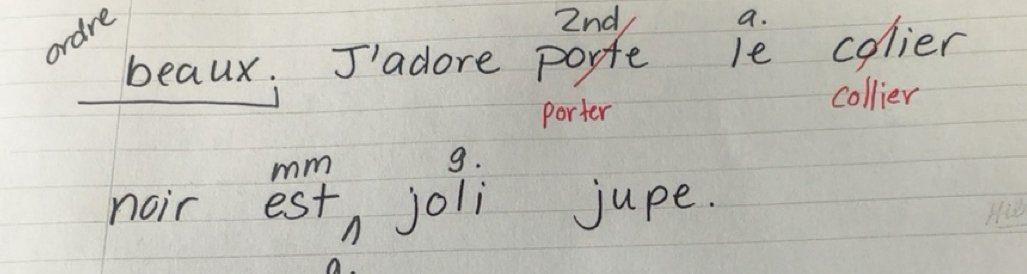 ordre
2nd a.
beaux. J'adore porte le colier
porter collier
mm g.
noir est ∧ joli jupe.
a.